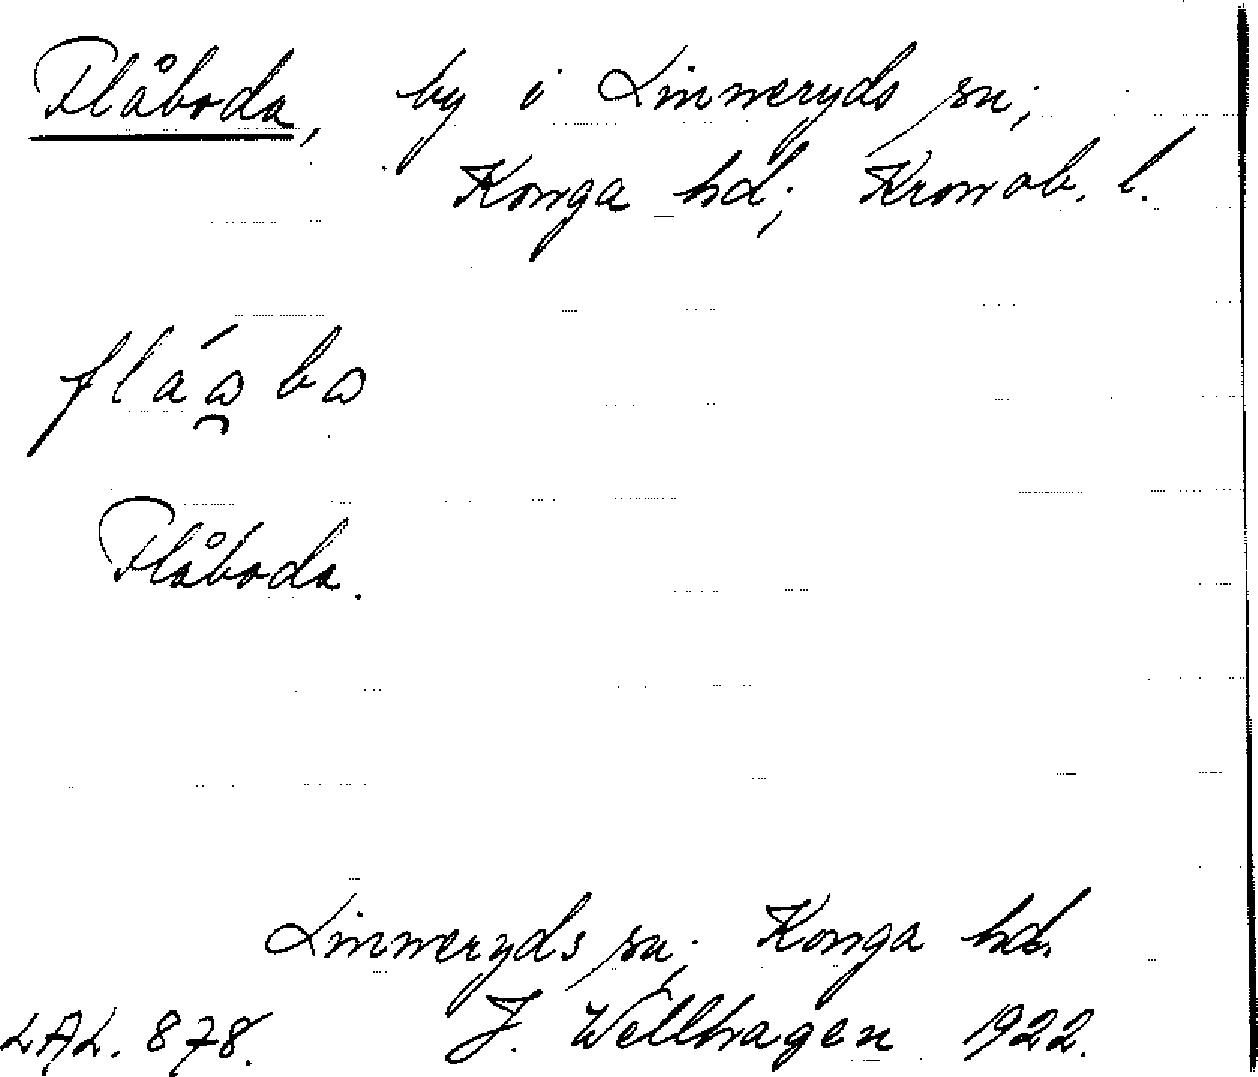 Flåboda, by i Linneryds sn;
Konga hd; Kronob. l.
Flåboda.
Linneryds sn; Konga hd.
LAL. 878. J. Wellhagen 1922.